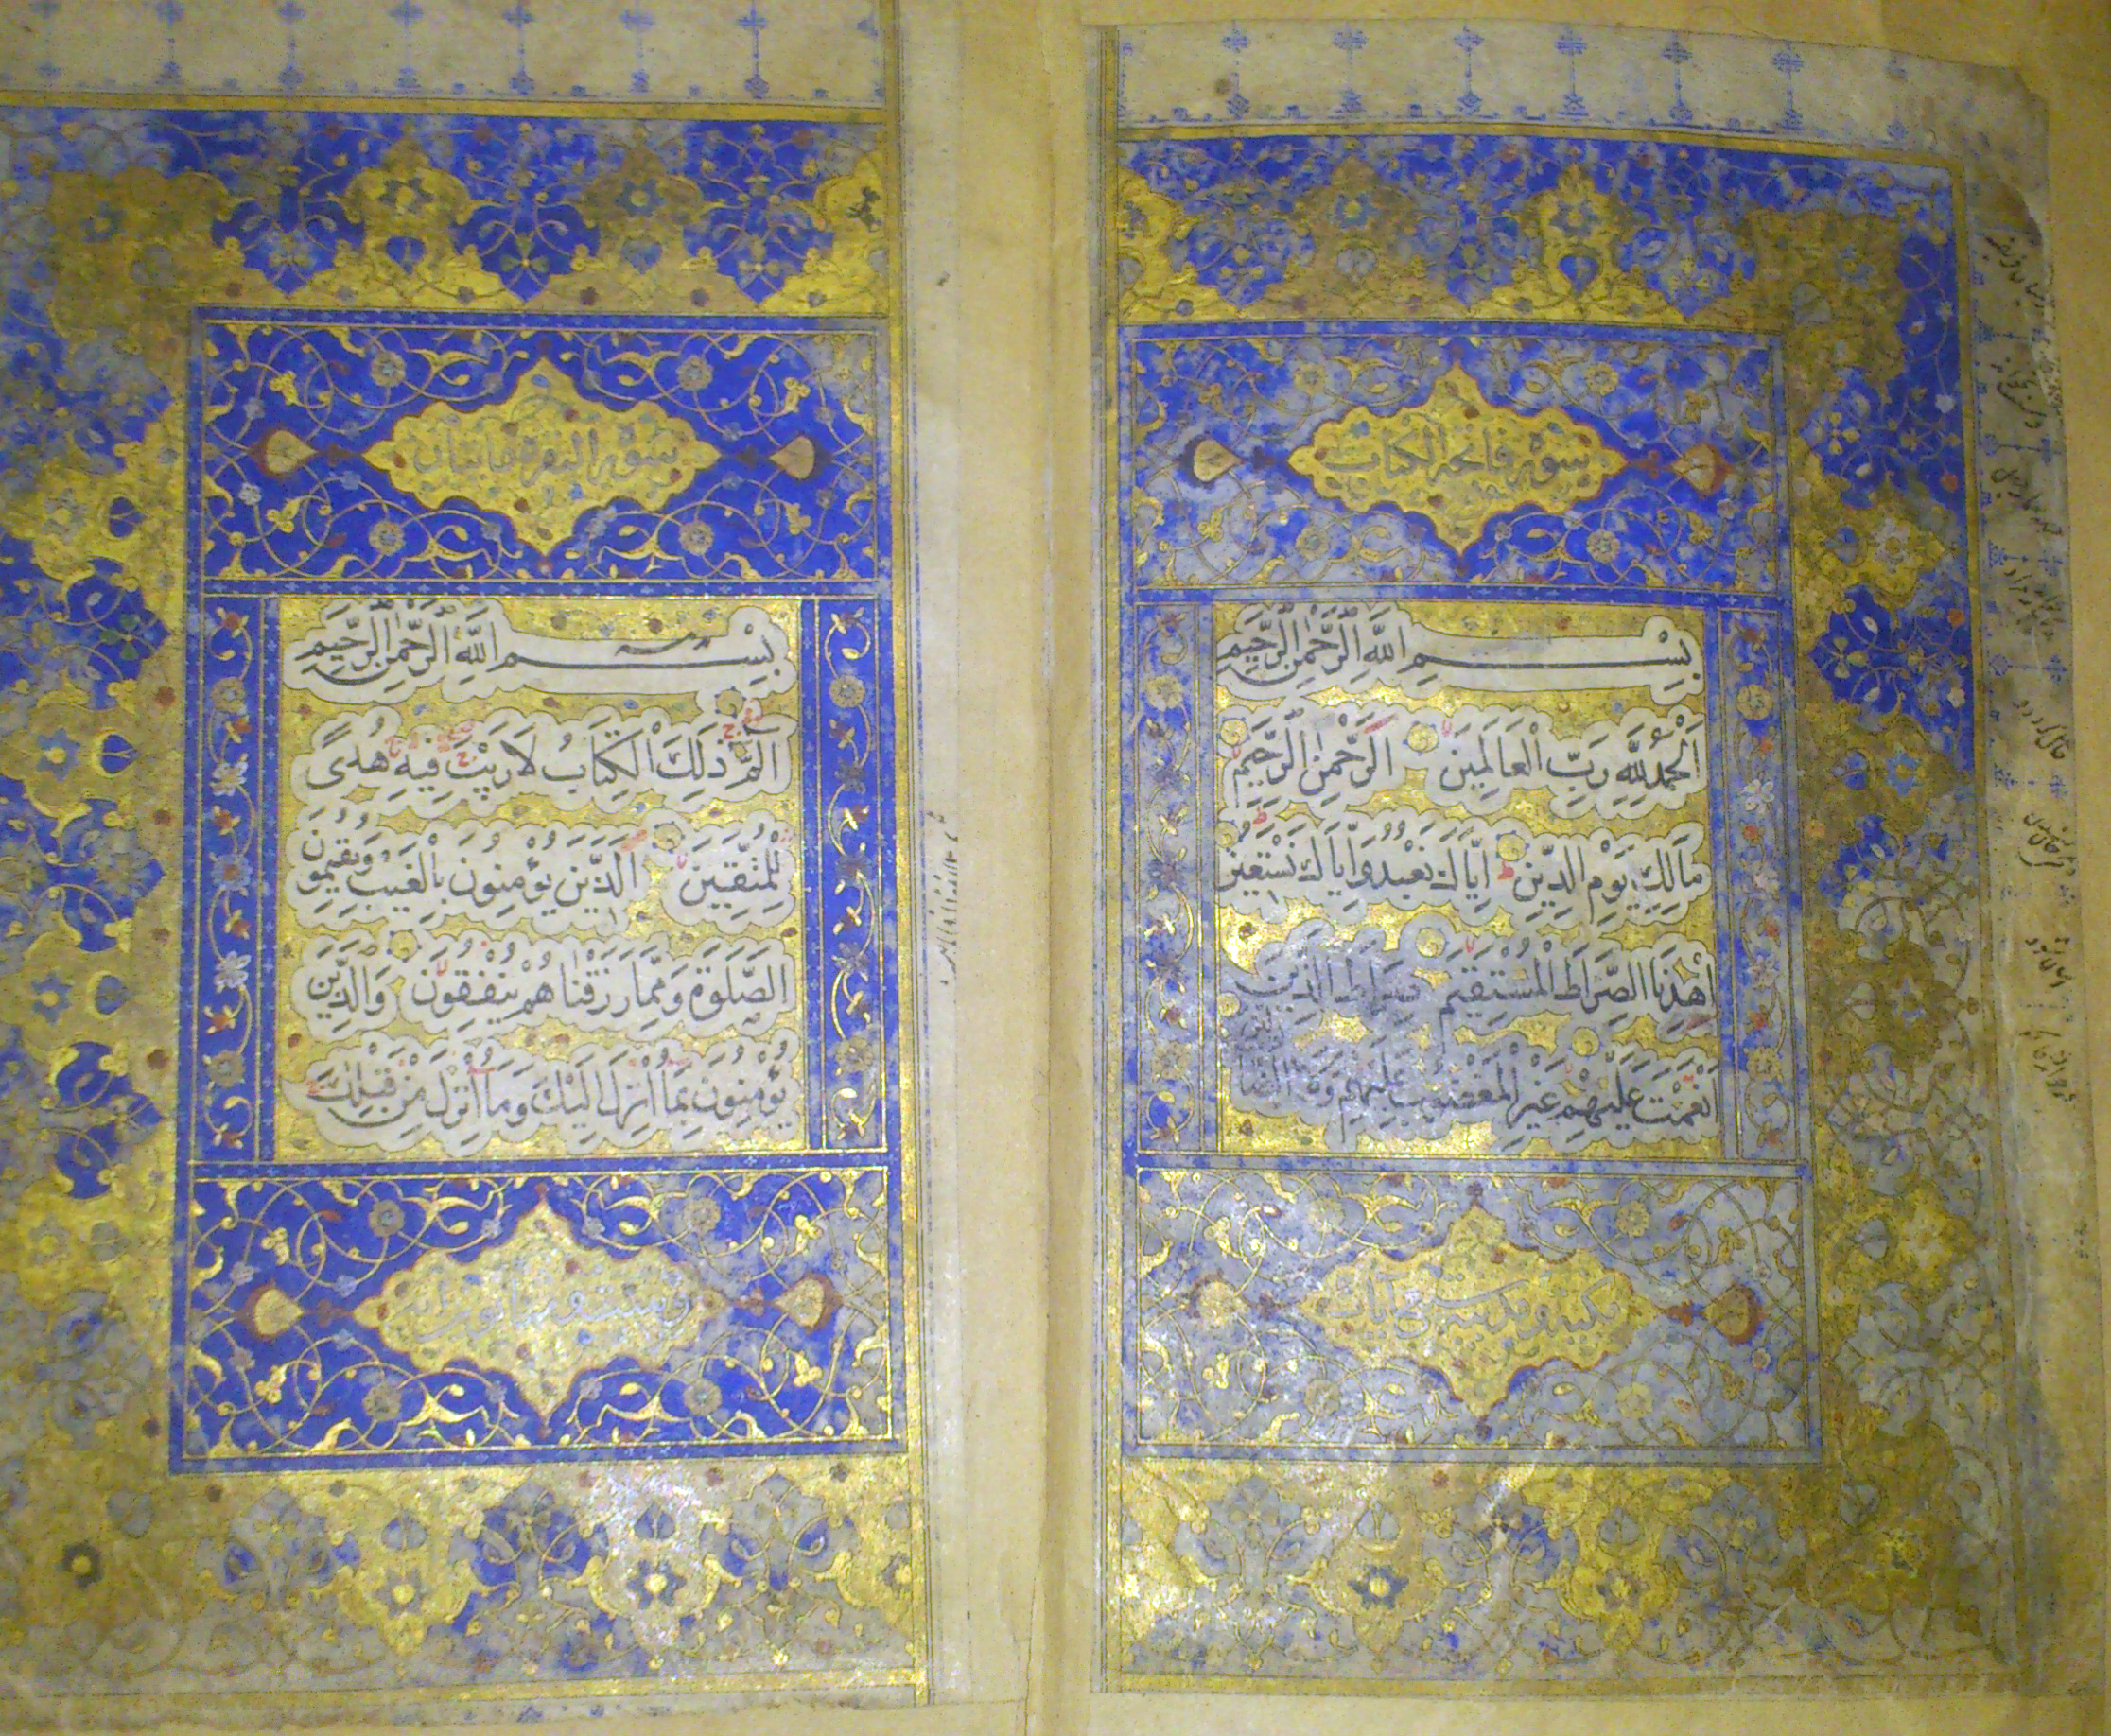 سورة فاتحة الكتاب
بِسْمِ اللَّهِ الرَّحْمٰنِ الرَّحِيمِ
اَلْحَمْدُ لِلَّهِ رَبِّ الْعَالَمِينَ الرَّحْمٰنِ الرَّحِيمِ
مَالِكِ يَوْمِ الدِّينِ اِيَّاكَ نَعْبُدُ وَاِيَّاكَ نَسْتَعِينُ
اِهْدِنَا الصِّرَاطَ الْمُسْتَقِيمَ صِرَاطَ الَّذِينَ
اَنْعَمْتَ عَلَيْهِمْ غَيْرِ الْمَغْضُوبِ عَلَيْهِمْ وَلَا الضَّالِّينَ
سورة البقرة مائتان
بِسْمِ اللَّهِ الرَّحْمٰنِ الرَّحِيمِ
الٓمٓ ذٰلِكَ الْكِتَابُ لَا رَيْبَ فِيهِ هُدًى
لِلْمُتَّقِينَ اَلَّذِينَ يُؤْمِنُونَ بِالْغَيْبِ وَيُقِيمُونَ
الصَّلٰوةَ وَمِمَّا رَزَقْنَاهُمْ يُنْفِقُونَ وَالَّذِينَ
يُؤْمِنُونَ بِمَا اُنْزِلَ اِلَيْكَ وَمَا اُنْزِلَ مِنْ قَبْلِكَ